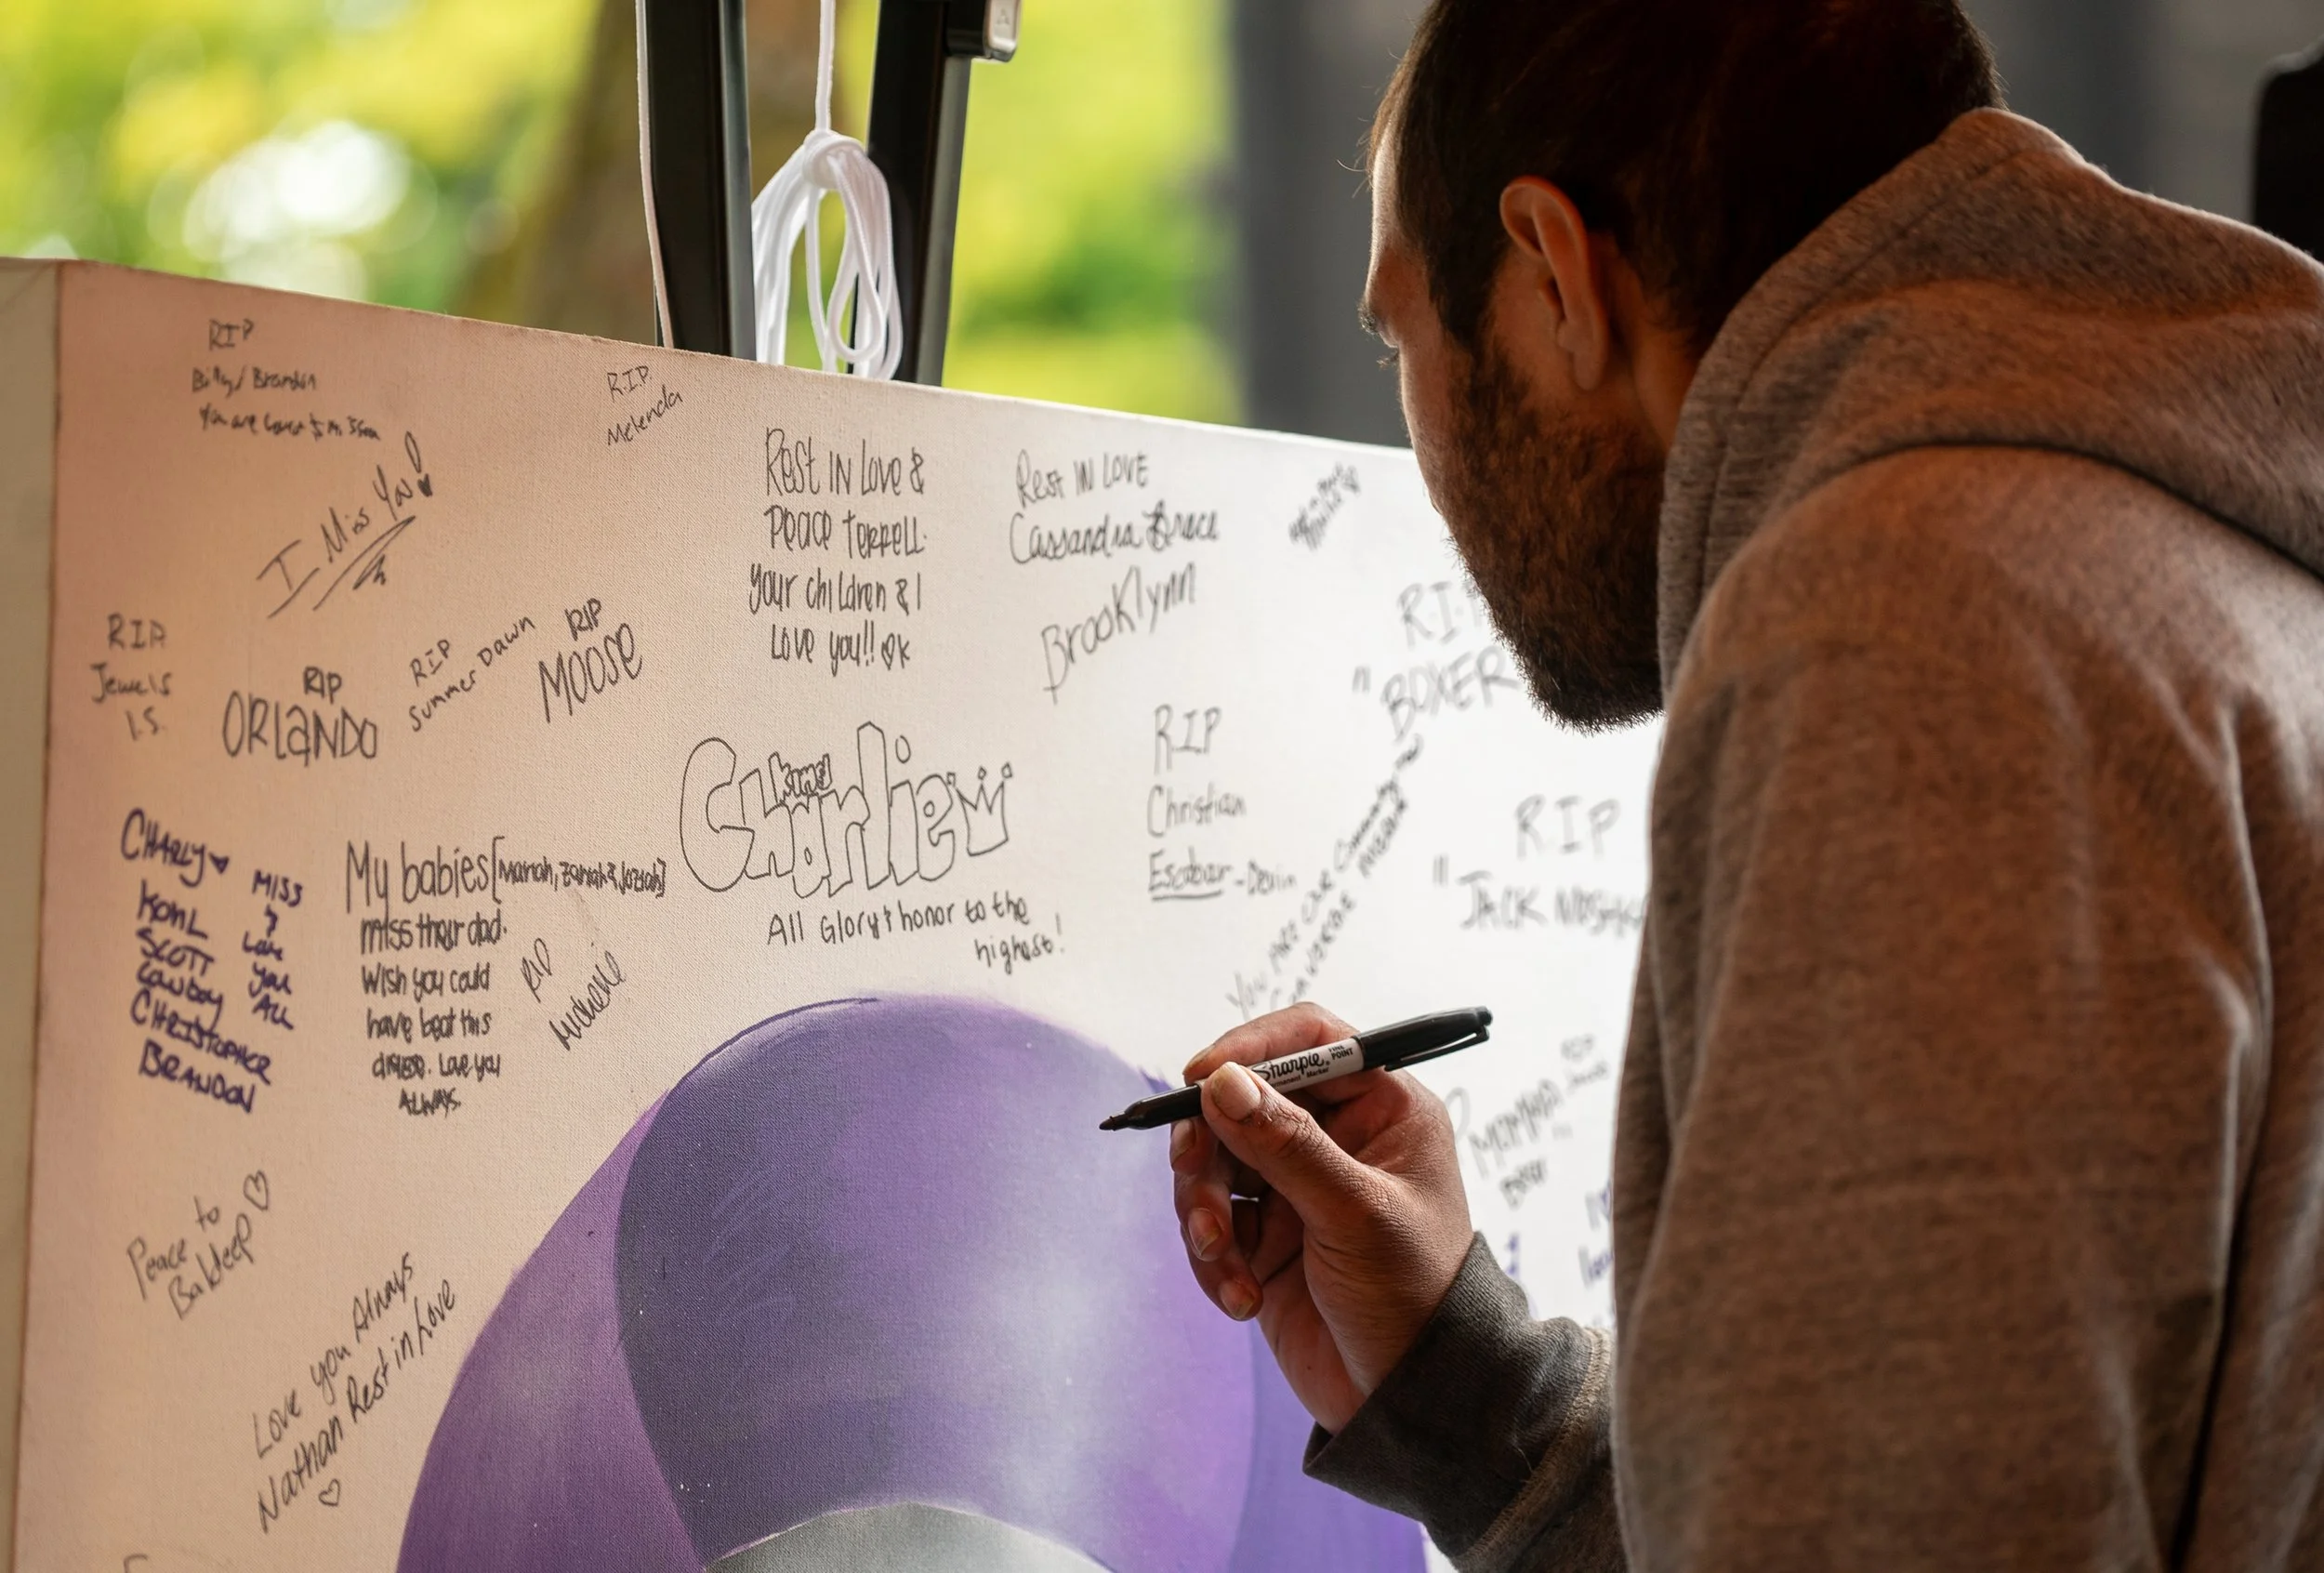 RIP
Billy/Brandon
You are
I Miss You!
R.I.P.
Melenda
Rest IN Love &
Peace Terrell.
your children & I
Love you!! K
Rest IN LOVE
Cassandra Brace
Brooklynn
RIP
Jewels
I.S.
RIP
ORLANDO
RIP
Summer Dawn
RIP
MOOSE
King
Charlie
All Glory & honor to the
highest!
RIP
Christian
Escobar - Devin
RIP
"BOXER
YOU ARE OUR Community
RIP
"JACK
CHARLY
KOHL
SCOTT
COWBOY
CHRISTOPHER
BRANDON
MISS
&
Love
you
ALL
My babies [Mariah, Zariah & Joziah]
miss their dad.
Wish you could
have beat this
disease. Love you
ALWAYS.
RIP
Michelle
Peace to
Baldeep
Love you Always
Nathan Rest in Love
Sharpie
FINE POINT
Permanent Marker
RIP